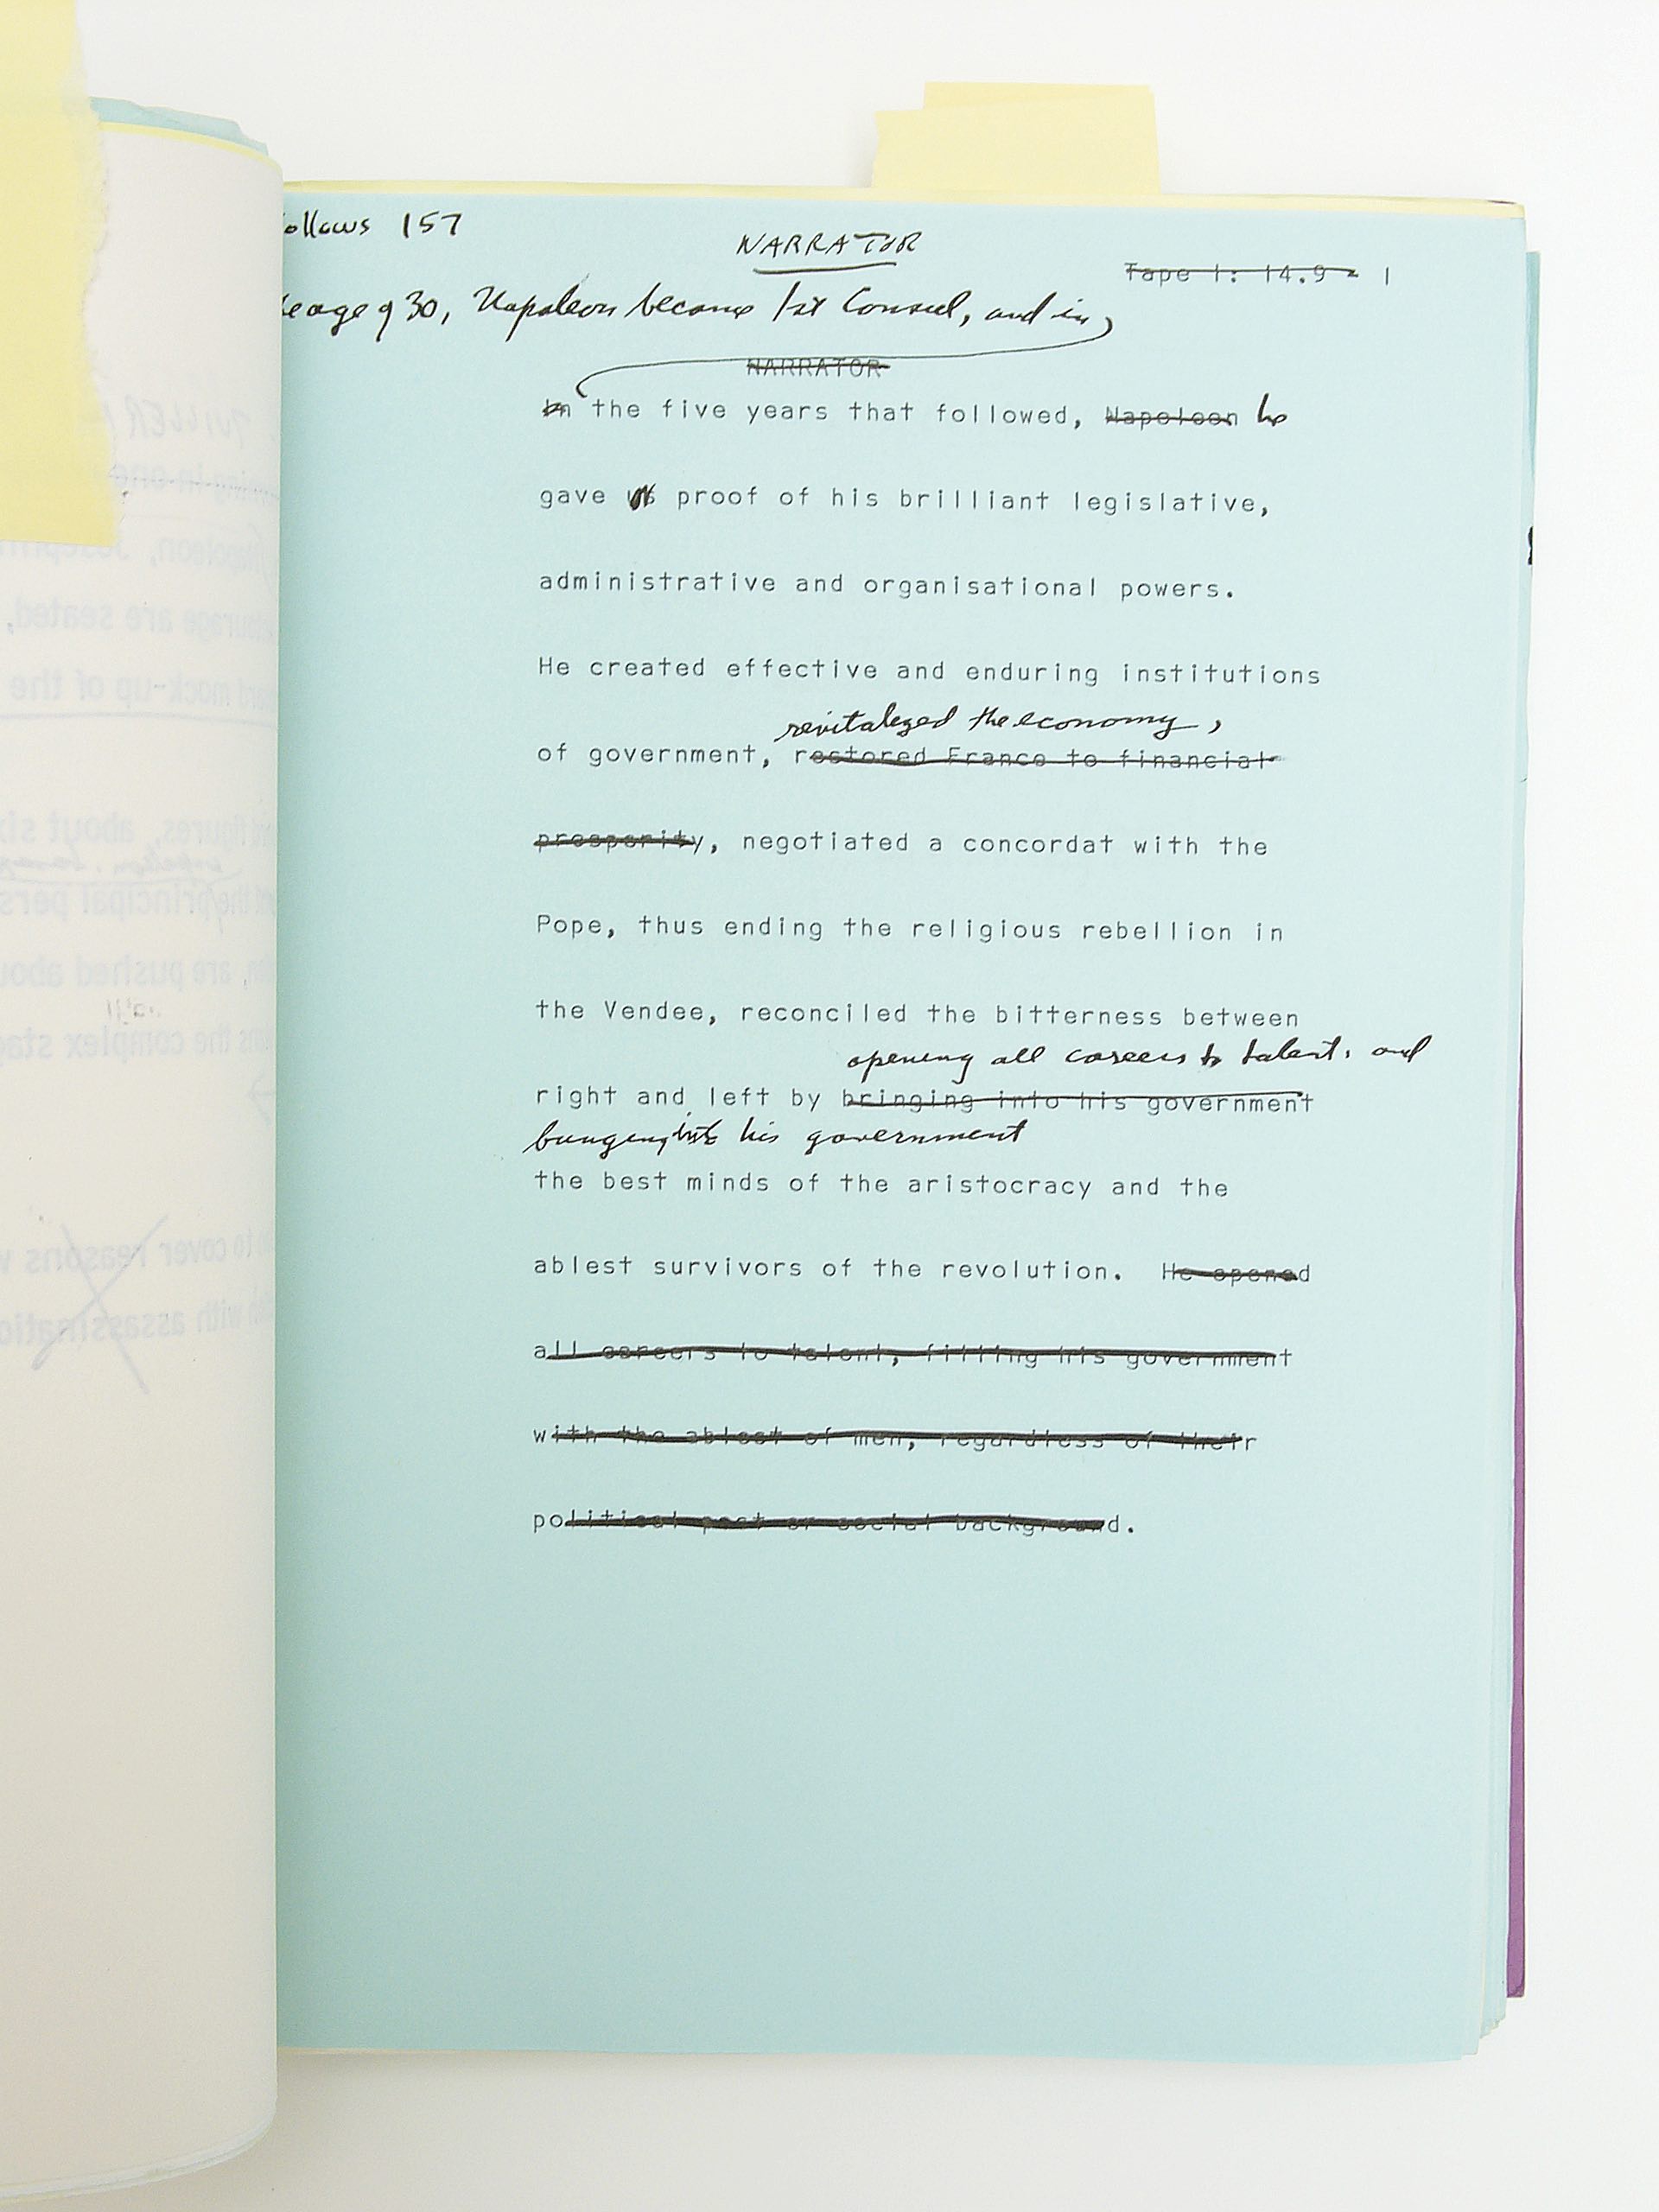 ollows 157
NARRATOR
Tape 1: 14.9 1
e age of 30, Napoleon became 1st Consul, and in
NARRATOR
In the five years that followed, Napoleon he
gave us proof of his brilliant legislative,
administrative and organisational powers.
He created effective and enduring institutions
revitalized the economy,
of government, restored France to financial
prosperity, negotiated a concordat with the
Pope, thus ending the religious rebellion in
the Vendee, reconciled the bitterness between
opening all careers to talent, and
right and left by bringing into his government
bringing into his government
the best minds of the aristocracy and the
ablest survivors of the revolution. He opened
all careers to talent, filling his government
with the ablest of men, regardless of their
political past or social background.